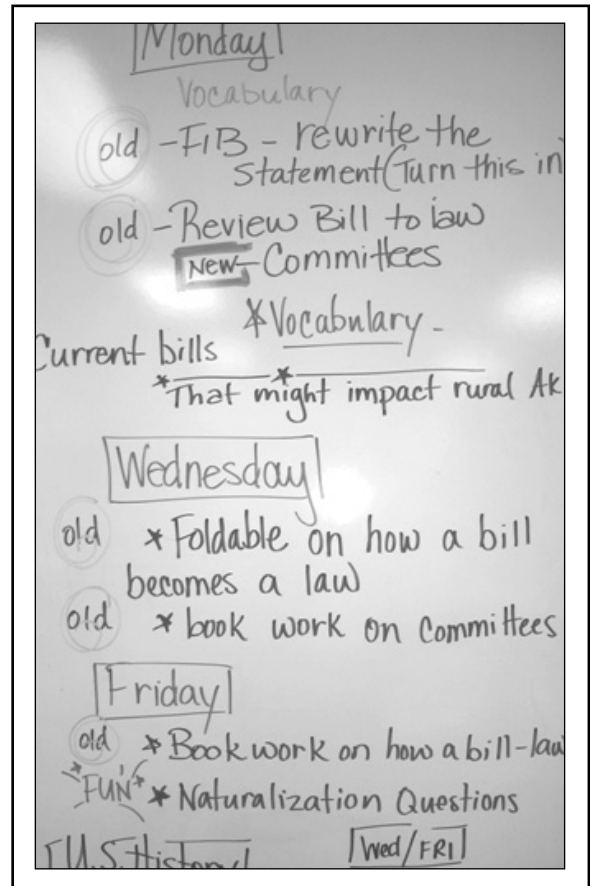 Monday
Vocabulary
old - FIB - rewrite the
statement (Turn this in)
old - Review Bill to law
New - Committees
*Vocabulary -
Current bills
*That might impact rural AK
Wednesday
old * Foldable on how a bill
becomes a law
old * book work on Committees
Friday
old * Book work on how a bill-law
*FUN* * Naturalization Questions
U.S. History Wed/FRI